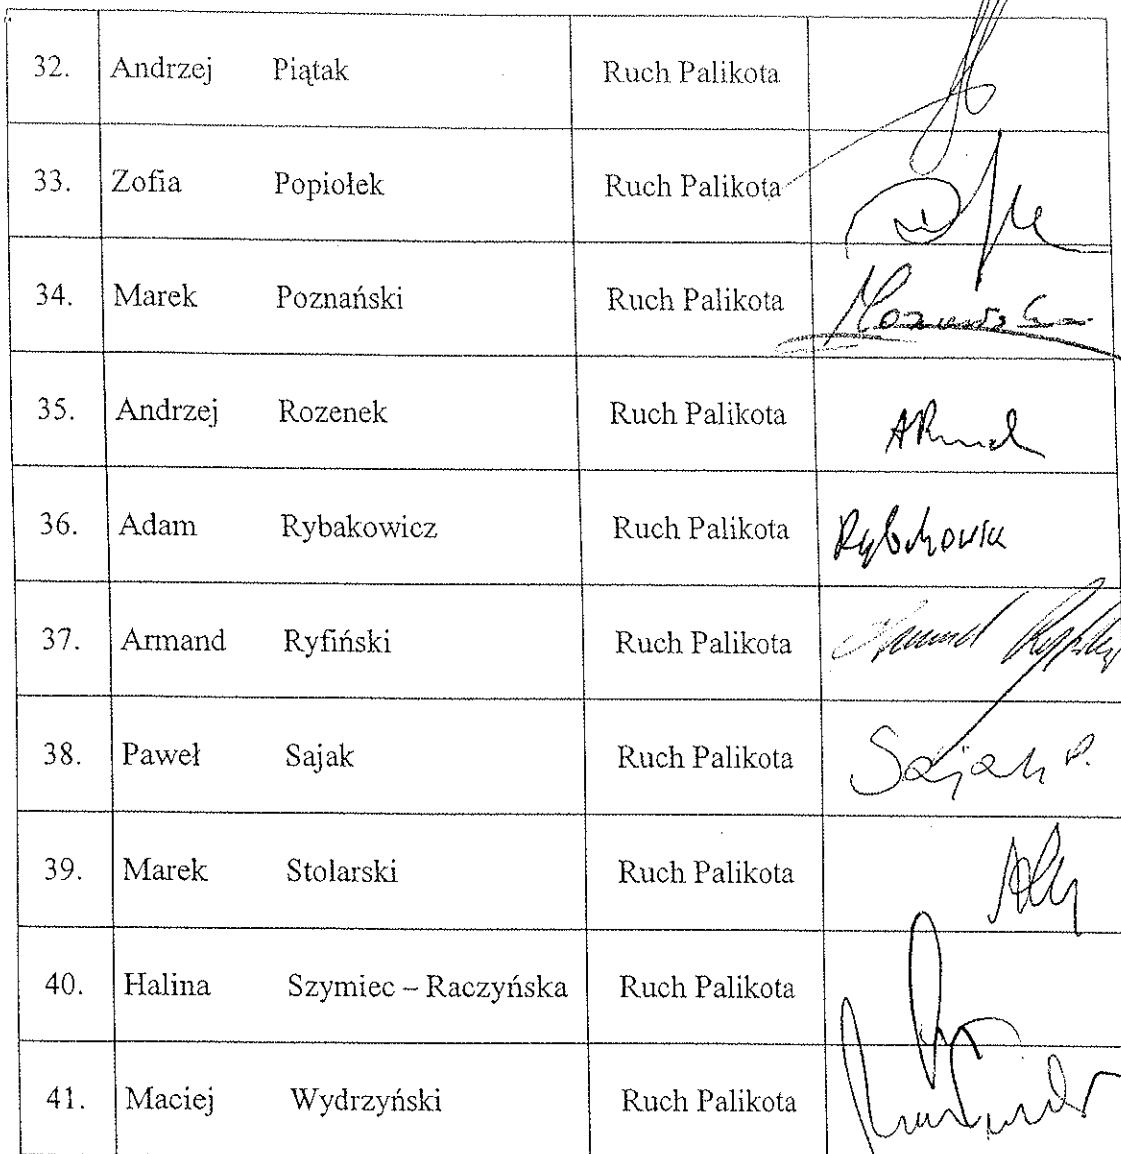 32. Andrzej Piątak Ruch Palikota
33. Zofia Popiołek Ruch Palikota
34. Marek Poznański Ruch Palikota
35. Andrzej Rozenek Ruch Palikota
36. Adam Rybakowicz Ruch Palikota
37. Armand Ryfiński Ruch Palikota Armand Ryfiński
38. Paweł Sajak Ruch Palikota Sajak P.
39. Marek Stolarski Ruch Palikota
40. Halina Szymiec – Raczyńska Ruch Palikota
41. Maciej Wydrzyński Ruch Palikota